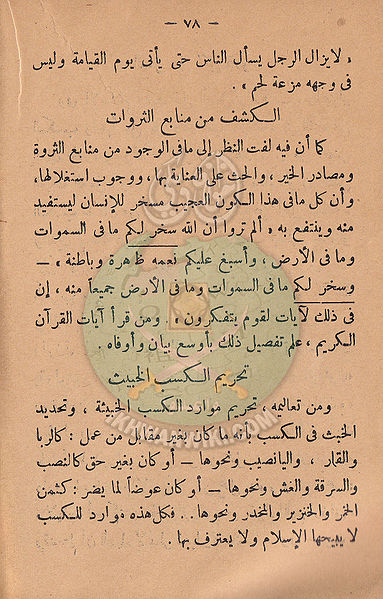 — ٧٨ —
« لا يزال الرجل يسأل الناس حتى يأتى يوم القيامة وليس
فى وجهه مزعة لحم » .
الكشف من منابع الثروات
كما أن فيه لفت النظر إلى ما فى الوجود من منابع الثروة
ومصادر الخير ، والحث على العناية بها ، ووجوب استغلالها ،
وأن كل ما فى هذا الكون العجيب مسخر للإنسان ليستفيد
منه وينتفع به « ألم تروا أن الله سخر لكم ما فى السموات
وما فى الأرض ، وأسبغ عليكم نعمه ظاهرة وباطنة » —
وسخر لكم ما فى السموات وما فى الأرض جميعاً منه ، إن
فى ذلك لآيات لقوم يتفكرون » . ومن قرأ آيات القرآن
الكريم ، علم تفصيل ذلك بأوسع بيان وأوفاه .
تحريم الكسب الخبيث
ومن تعاليمه ، تحريم موارد الكسب الخبيثة ، وتحديد
الخبث فى الكسب بأنه ما كان بغير مقابل من عمل : كالربا
والقمار ، واليانصيب ونحوها — أو كان بغير حق كالنصب
والسرقة والغش ونحوها — أو كان عوضاً لما يضر : كثمن
الخمر والخنزير والمخدر ونحوها . . فكل هذه موارد للكسب
لا يبيحها الإسلام ولا يعترف بها .